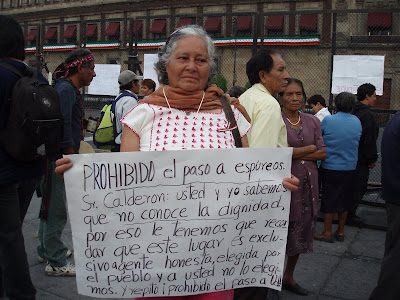 PROHIBIDO el paso a espúreos.
Sr. Calderón: usted y yo sabemos
que no conoce la dignidad,
por eso le tenemos que recor
dar que este lugar es exclu-
sivo gente honesta, elegida por
el pueblo y a usted no lo elegi-
mos. y repito ¡prohibido el paso a